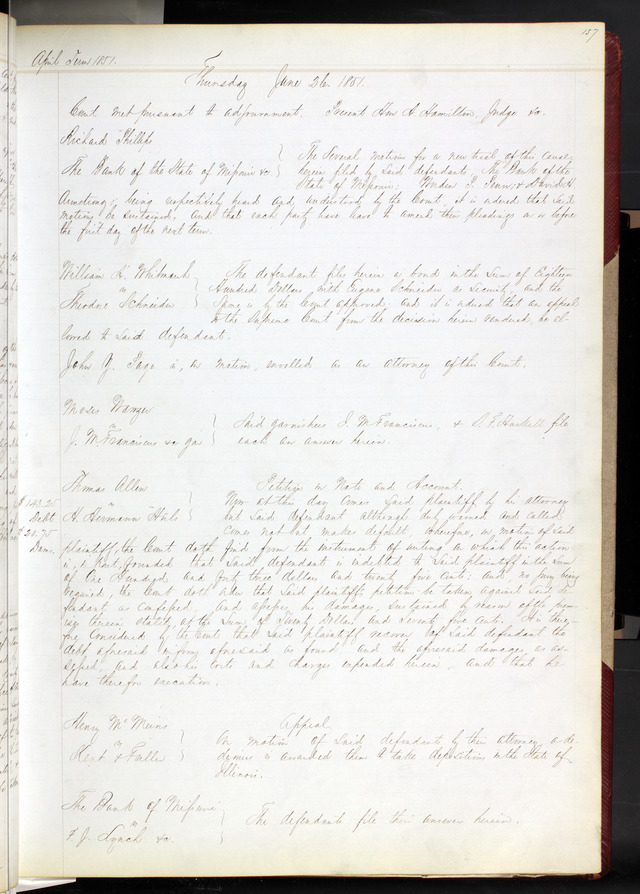 157
April Term 1851.
Thursday June 26. 1851.
Court met pursuant to adjournment. Present Hon A. Hamilton, Judge &c.
Richard Phillips
vs
The Bank of the State of Missouri &c
The Several motions for a new trial of this cause,
herein filed by said defendants, The Bank of the
State of Missouri,
Armstrong; being respectively heard and understood by the Court, it is ordered that said
motions be sustained. And that each party have leave to amend their pleadings on or before
the first day of the next term.
William
vs
Theodore Schneider
The defendant files herein a bond in the Sum of Eighteen
Hundred Dollars, with Eugene Schneider as Security, and the
Same is by the Court approved; and it is ordered that an appeal
to the Supreme Court from the decision herein rendered, be al-
lowed to said defendant.
John Y. Page is, on motion, enrolled as an attorney of this Court.
Moses
vs
J. M Franciscus &c gar
Said garnishees J. M Franciscus, & D. F. Haskell file
each an answer herein.
Thomas Allen
vs
H. Hermann
$ 143.25
Debt
$ 20.75
Dam.
Petition in Note and Account.
Now at this day comes said plaintiff by his attorney
but said defendant although duly warned and called,
comes not but makes default; wherefore, on motion of said
plaintiff, the Court doth find from the instrument of writing on which this action
is, in part, founded that said defendant is indebted to said plaintiff in the sum
of One Hundred and forty three dollars and twenty five cents: and, no jury being
required, the Court doth order that said plaintiff's petition be taken against said de-
fendant as confessed, and assesses his damages, sustained by reason of the prem-
ises therein stated, at the sum of Twenty Dollars and Seventy five cents. It is there-
fore considered by the Court that said plaintiff recover of said defendant the
debt aforesaid in form aforesaid as found, and the aforesaid damages as as-
sessed, and also his costs and charges expended herein. And that he
have therefor execution.
Henry
vs
Kent & Fuller
Appeal
On motion of said defendants by their attorney a de-
dimus is awarded them to take depositions in the State of
Illinois.
The Bank of Missouri
vs
F. J. Lynch &c.
The defendants file their answer herein.